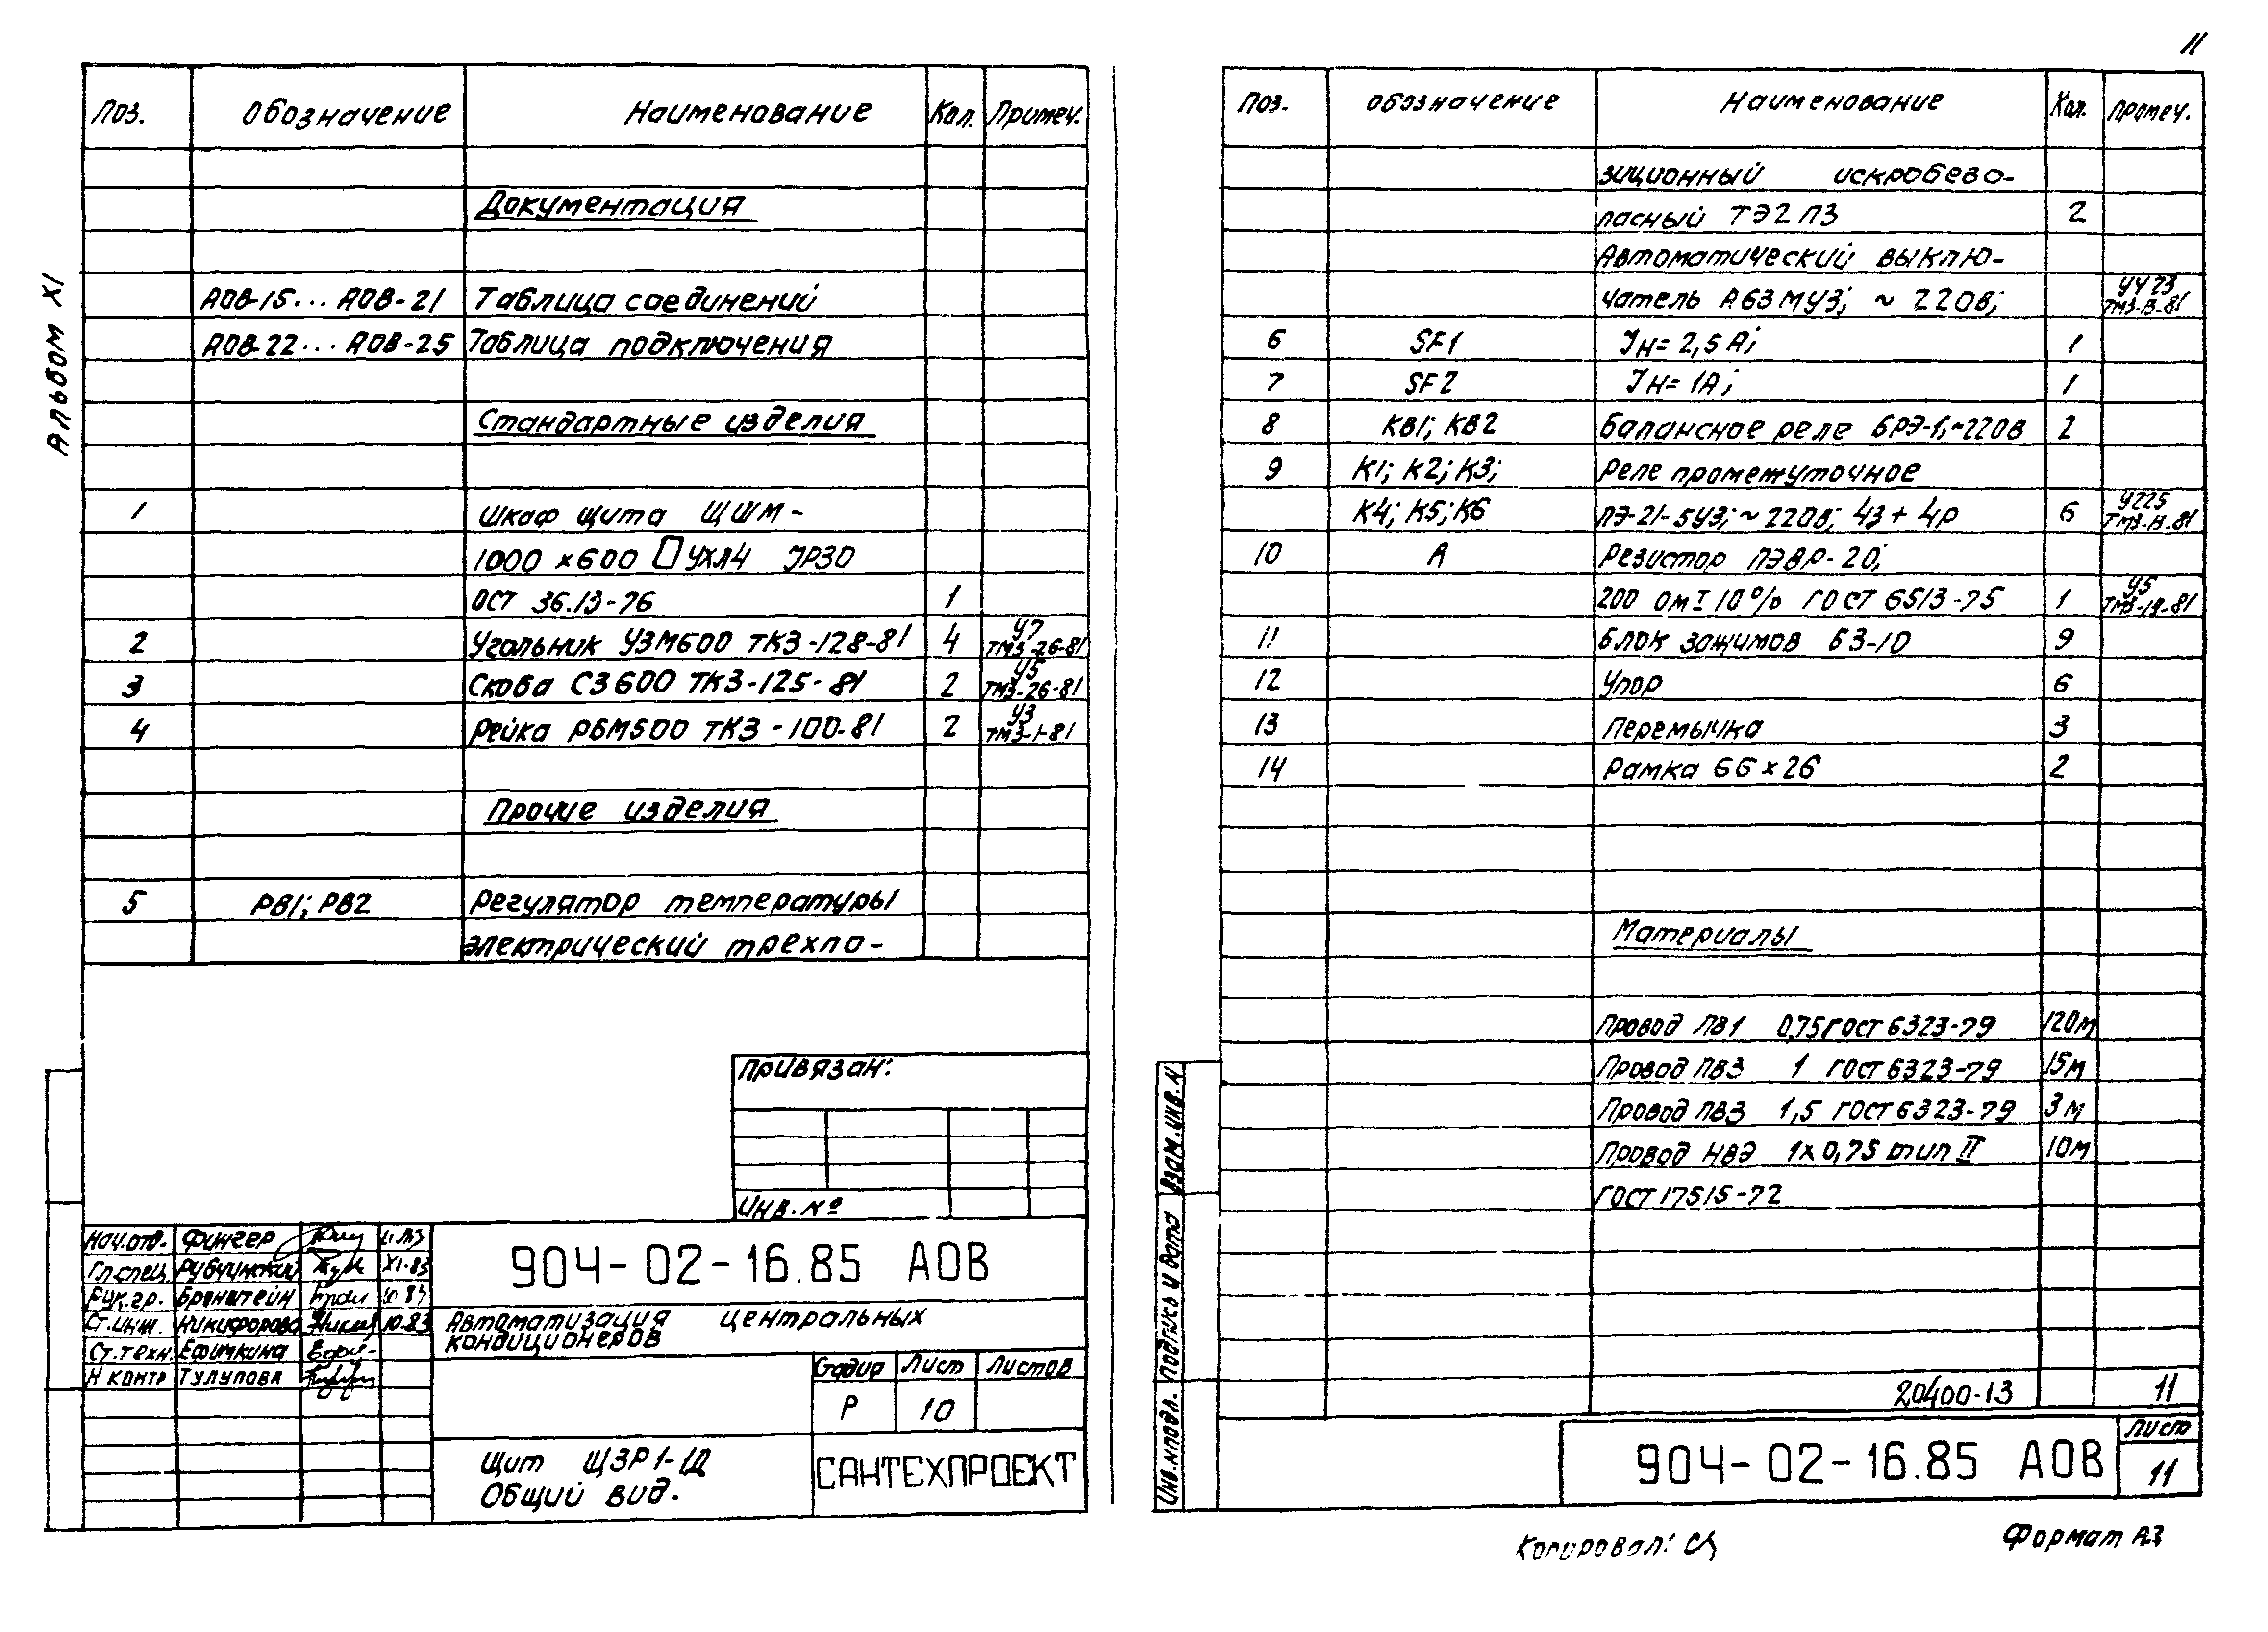 11
Альбом XI
Поз. Обозначение Наименование Кол. Примеч.
Документация
АОВ-15... АОВ-21 Таблица соединений
АОВ-22... АОВ-25 Таблица подключения
Стандартные изделия
1 Шкаф щита ЩШМ-
1000 х 600 УХЛ4 JP30
ОСТ 36.13-76 1
2 Угольник УЗМ600 ТКЗ-128-81 4 У7 ТМ3-26-81
3 Скоба СЗ600 ТКЗ-125-81 2 У5 ТМ3-26-81
4 Рейка РБМ500 ТКЗ-100-81 2 У3 ТМ3-1-81
Прочие изделия
5 РВ1; РВ2 Регулятор температуры
электрический трехпо-
Привязан:
Инв. №
Нач.отд. Фингер 11.83
Гл.спец. Рубчинский XI.83
Рук.гр. Бронштейн 10.83
Ст.инж. Никифорова 10.83
Ст.техн. Ефимкина
Н контр Тулупова
904-02-16.85 АОВ
Автоматизация центральных
кондиционеров
Стадия Лист Листов
Р 10
Щит ЩЗР1-1Д
Общий вид.
САНТЕХПРОЕКТ
Поз. Обозначение Наименование Кол. Примеч.
зиционный искробезо-
пасный ТЭ2 П3 2
Автоматический выклю-
чатель А63МУ3; ~ 220В; УЧ23 ТМ3-13-81
6 SF1 Jн= 2,5 А; 1
7 SF2 Jн= 1А; 1
8 КВ1; КВ2 Балансное реле БРЭ-1;~220В 2
9 К1; К2; К3; Реле промежуточное
К4; К5; К6 ПЭ-21-5У3;~220В; 4з + 4р 6 У225 ТМ3-13-81
10 А Резистор ПЭВР-20;
200 Ом ± 10% ГОСТ 6513-75 1 У5 ТМ3-19-81
11 Блок зажимов БЗ-10 9
12 Упор 6
13 Перемычка 3
14 Рамка 66 х 26 2
Материалы
Провод ПВ1 0,75 ГОСТ 6323-79 120м
Провод ПВ3 1 ГОСТ 6323-79 15м
Провод ПВ3 1,5 ГОСТ 6323-79 3м
Провод НВЭ 1х0,75 тип II 10м
ГОСТ 17515-72
20400-13 11
Инв.№подл. Подпись и дата Взам.инв.№
904-02-16.85 АОВ
Лист
11
Копировал:
Формат А3